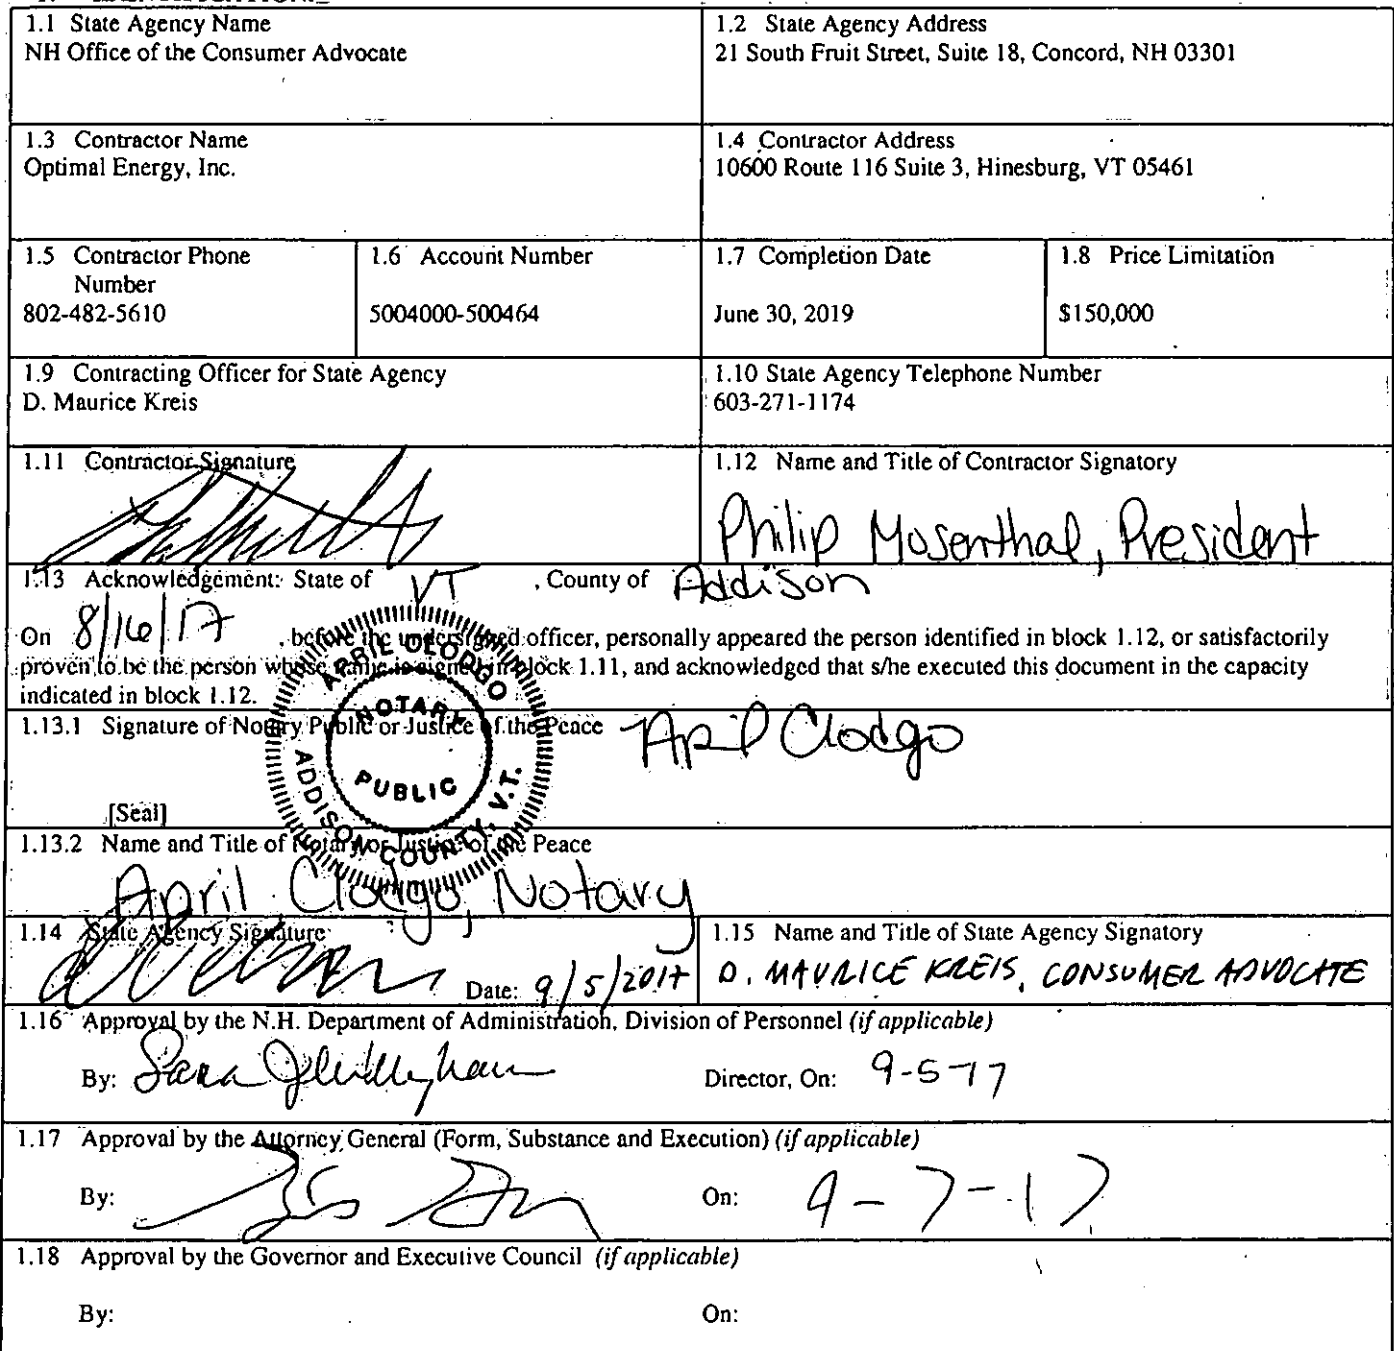 1.1 State Agency Name
NH Office of the Consumer Advocate
1.2 State Agency Address
21 South Fruit Street, Suite 18, Concord, NH 03301
1.3 Contractor Name
Optimal Energy, Inc.
1.4 Contractor Address
10600 Route 116 Suite 3, Hinesburg, VT 05461
1.5 Contractor Phone
Number
802-482-5610
1.6 Account Number
5004000-500464
1.7 Completion Date
June 30, 2019
1.8 Price Limitation
$150,000
1.9 Contracting Officer for State Agency
D. Maurice Kreis
1.10 State Agency Telephone Number
603-271-1174
1.11 Contractor Signature
1.12 Name and Title of Contractor Signatory
Philip Mosenthal, President
1.13 Acknowledgement: State of VT , County of Addison
On 8/16/17 , before the undersigned officer, personally appeared the person identified in block 1.12, or satisfactorily
proven to be the person whose name is signed in block 1.11, and acknowledged that s/he executed this document in the capacity
indicated in block 1.12.
1.13.1 Signature of Notary Public or Justice of the Peace April Clodgo
[Seal]
APRIL CLODGO
NOTARY
PUBLIC
ADDISON COUNTY, V.T.
1.13.2 Name and Title of Notary or Justice of the Peace
April Clodgo, Notary
1.14 State Agency Signature
Date: 9/5/2017
1.15 Name and Title of State Agency Signatory
D. MAURICE KREIS, CONSUMER ADVOCATE
1.16 Approval by the N.H. Department of Administration, Division of Personnel (if applicable)
By: Sara Director, On: 9-5-17
1.17 Approval by the Attorney General (Form, Substance and Execution) (if applicable)
By: On: 9-7-17
1.18 Approval by the Governor and Executive Council (if applicable)
By: On: